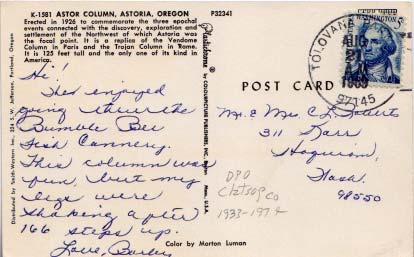 K-1581 ASTOR COLUMN, ASTORIA, OREGON P32341
Erected in 1926 to commemorate the three epochal
events connected with the discovery, exploration and
settlement of the Northwest of which Astoria was
the focal point. It is a replica of the Vendome
Column in Paris and the Trojan Column in Rome.
It is 125 feet tall and the only one of its kind in
America.
Hi!
enjoyed
going thru the
Bumble Bee
Fish Cannery.
This column was
fun, but my
legs were
shaking after
166 steps up.
Love,
Distributed by Smith-Western Inc. Portland, Oregon
Plastichrome
by COLOURPICTURE PUBLISHERS, INC., Boston, Mass. U.S.A.
POST CARD
TOLOVANA
AUG
21
97145
WASHINGTON
Mr. & Mrs. C. L.
311 Karr
Hoquiam,
Wash.
98550
DPO
Clatsop Co
1933-1974
Color by Morton Luman